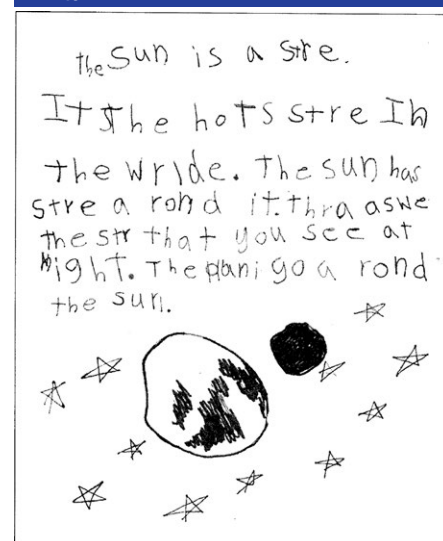 the sun is a stre.
It the hots stre In
the wride. the sun has
stre a rond it. thra aswe
the str that you see at
night. The plani go a rond
the sun.